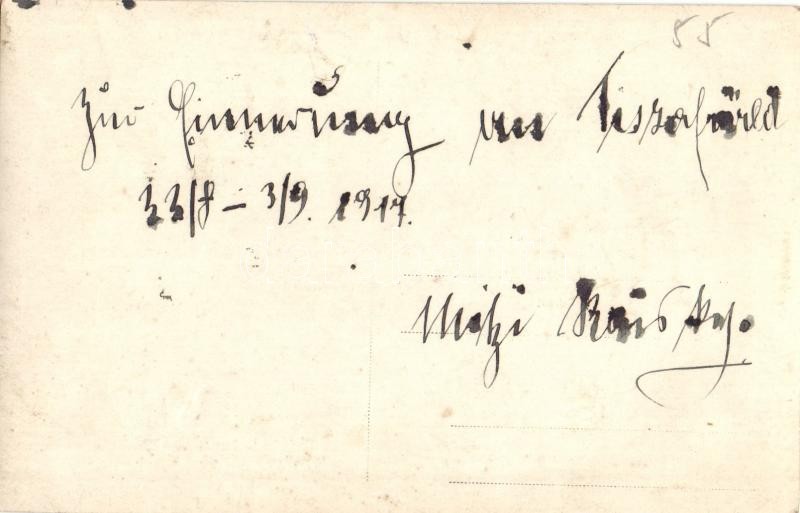 55
Zur Erinnerung an Tiszafüred
22/8 – 3/9. 1917.
Mitzi